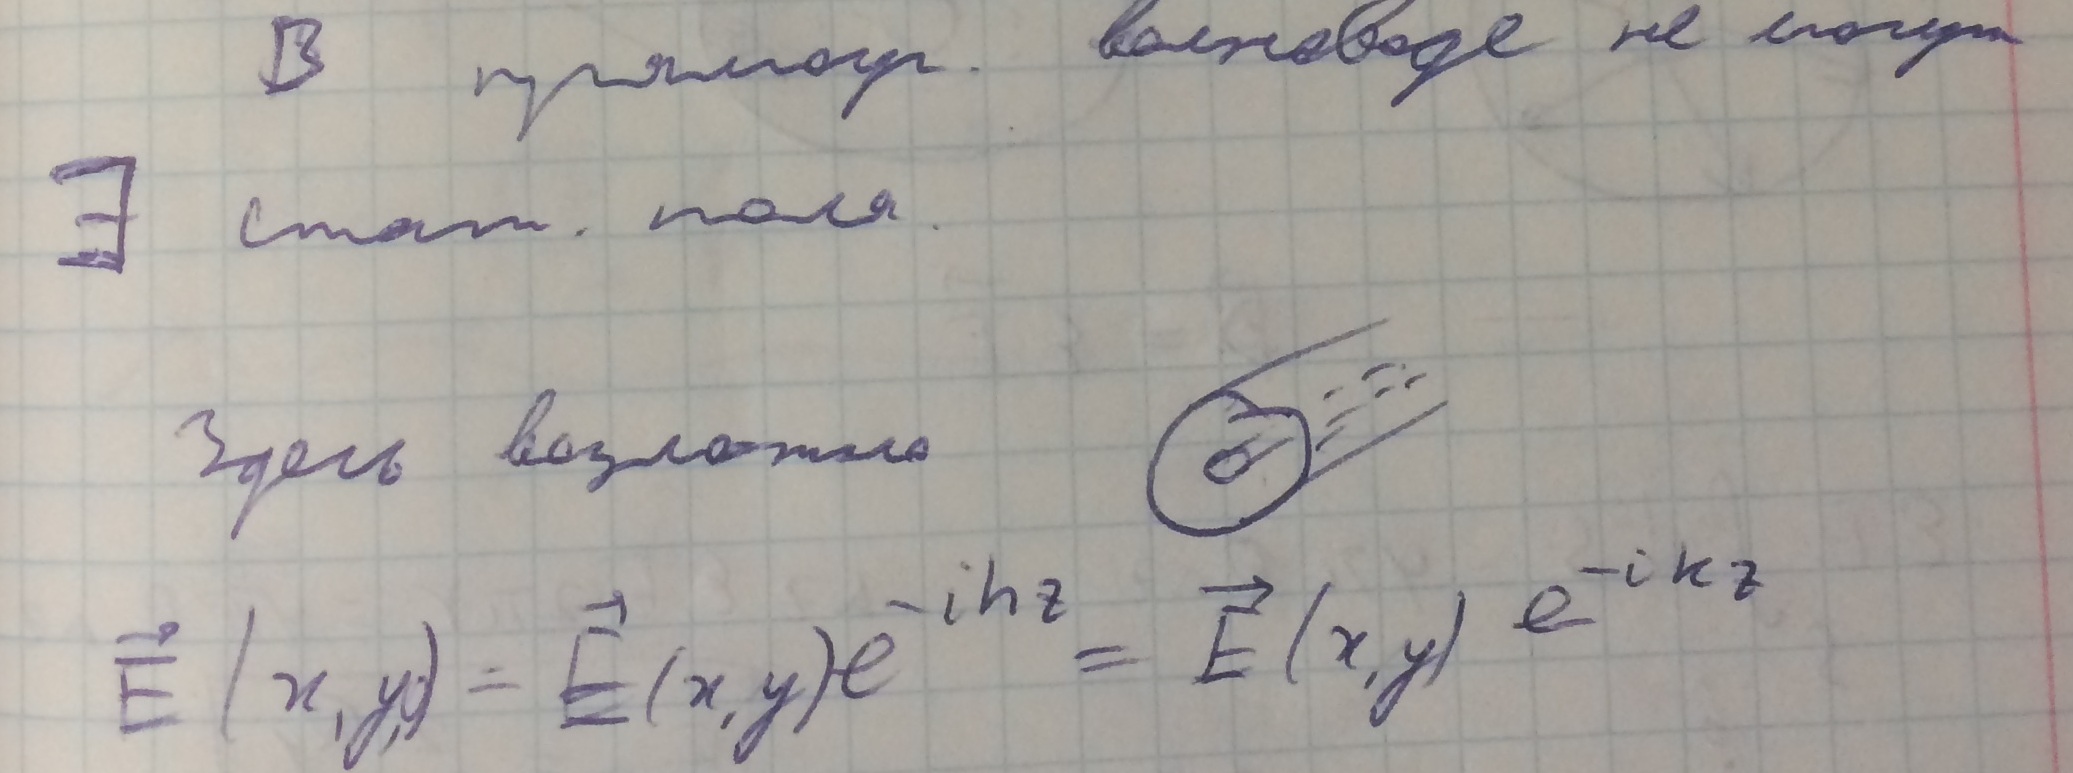 В прямоуг. волноводе не могут
∃ стат. поля.
Здесь возможно
E⃗(x,y) = E⃗(x,y)e^{-ihz} = E⃗(x,y) e^{-ikz}